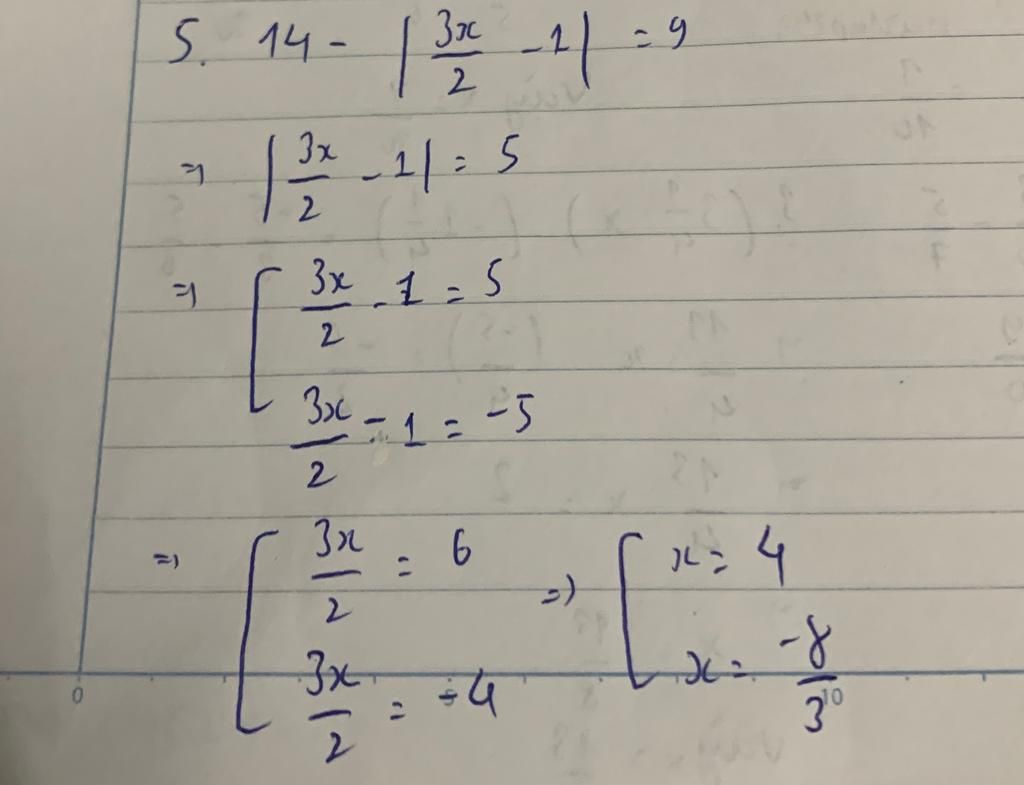 5. 14 - |3x/2 - 1| = 9
=> |3x/2 - 1| = 5
=> [ 3x/2 - 1 = 5
3x/2 - 1 = -5
=> [ 3x/2 = 6 => [ x = 4
3x/2 = -4 x = -8/3
0 10